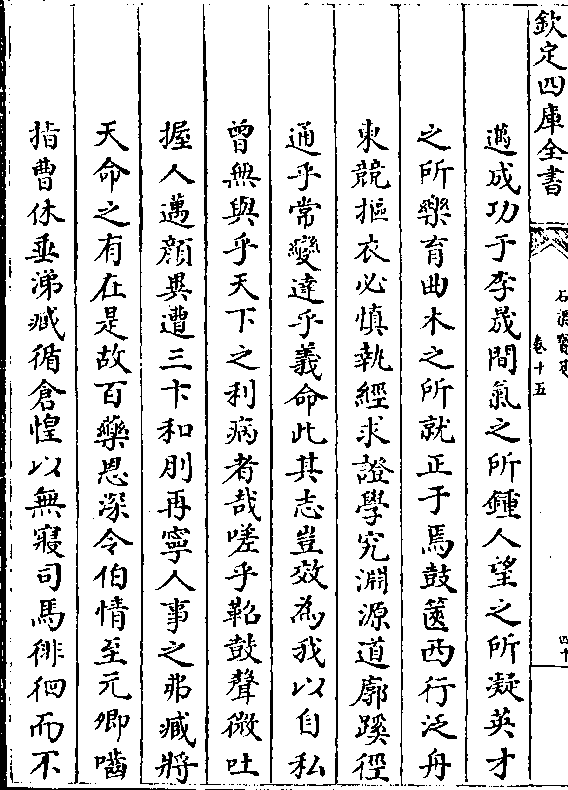 欽定四庫全書
卷十五
四十
邁成功于李晟間氣之所鍾人望之所凝英才
之所樂育曲木之所就正于焉鼓篋西行泛舟
東競摳衣必慎執經求證學究淵源道廓蹊徑
通乎常變達乎義命此其志豈效為我以自私
曾無與乎天下之利病者哉嗟乎鞀鼓聲微吐
握人邁顔異遭三卞和刖再寧人事之弗臧將
天命之有在是故百藥思深令伯情至元卿嚙
指曹休垂涕臧循倉惶以無寢司馬徘徊而不